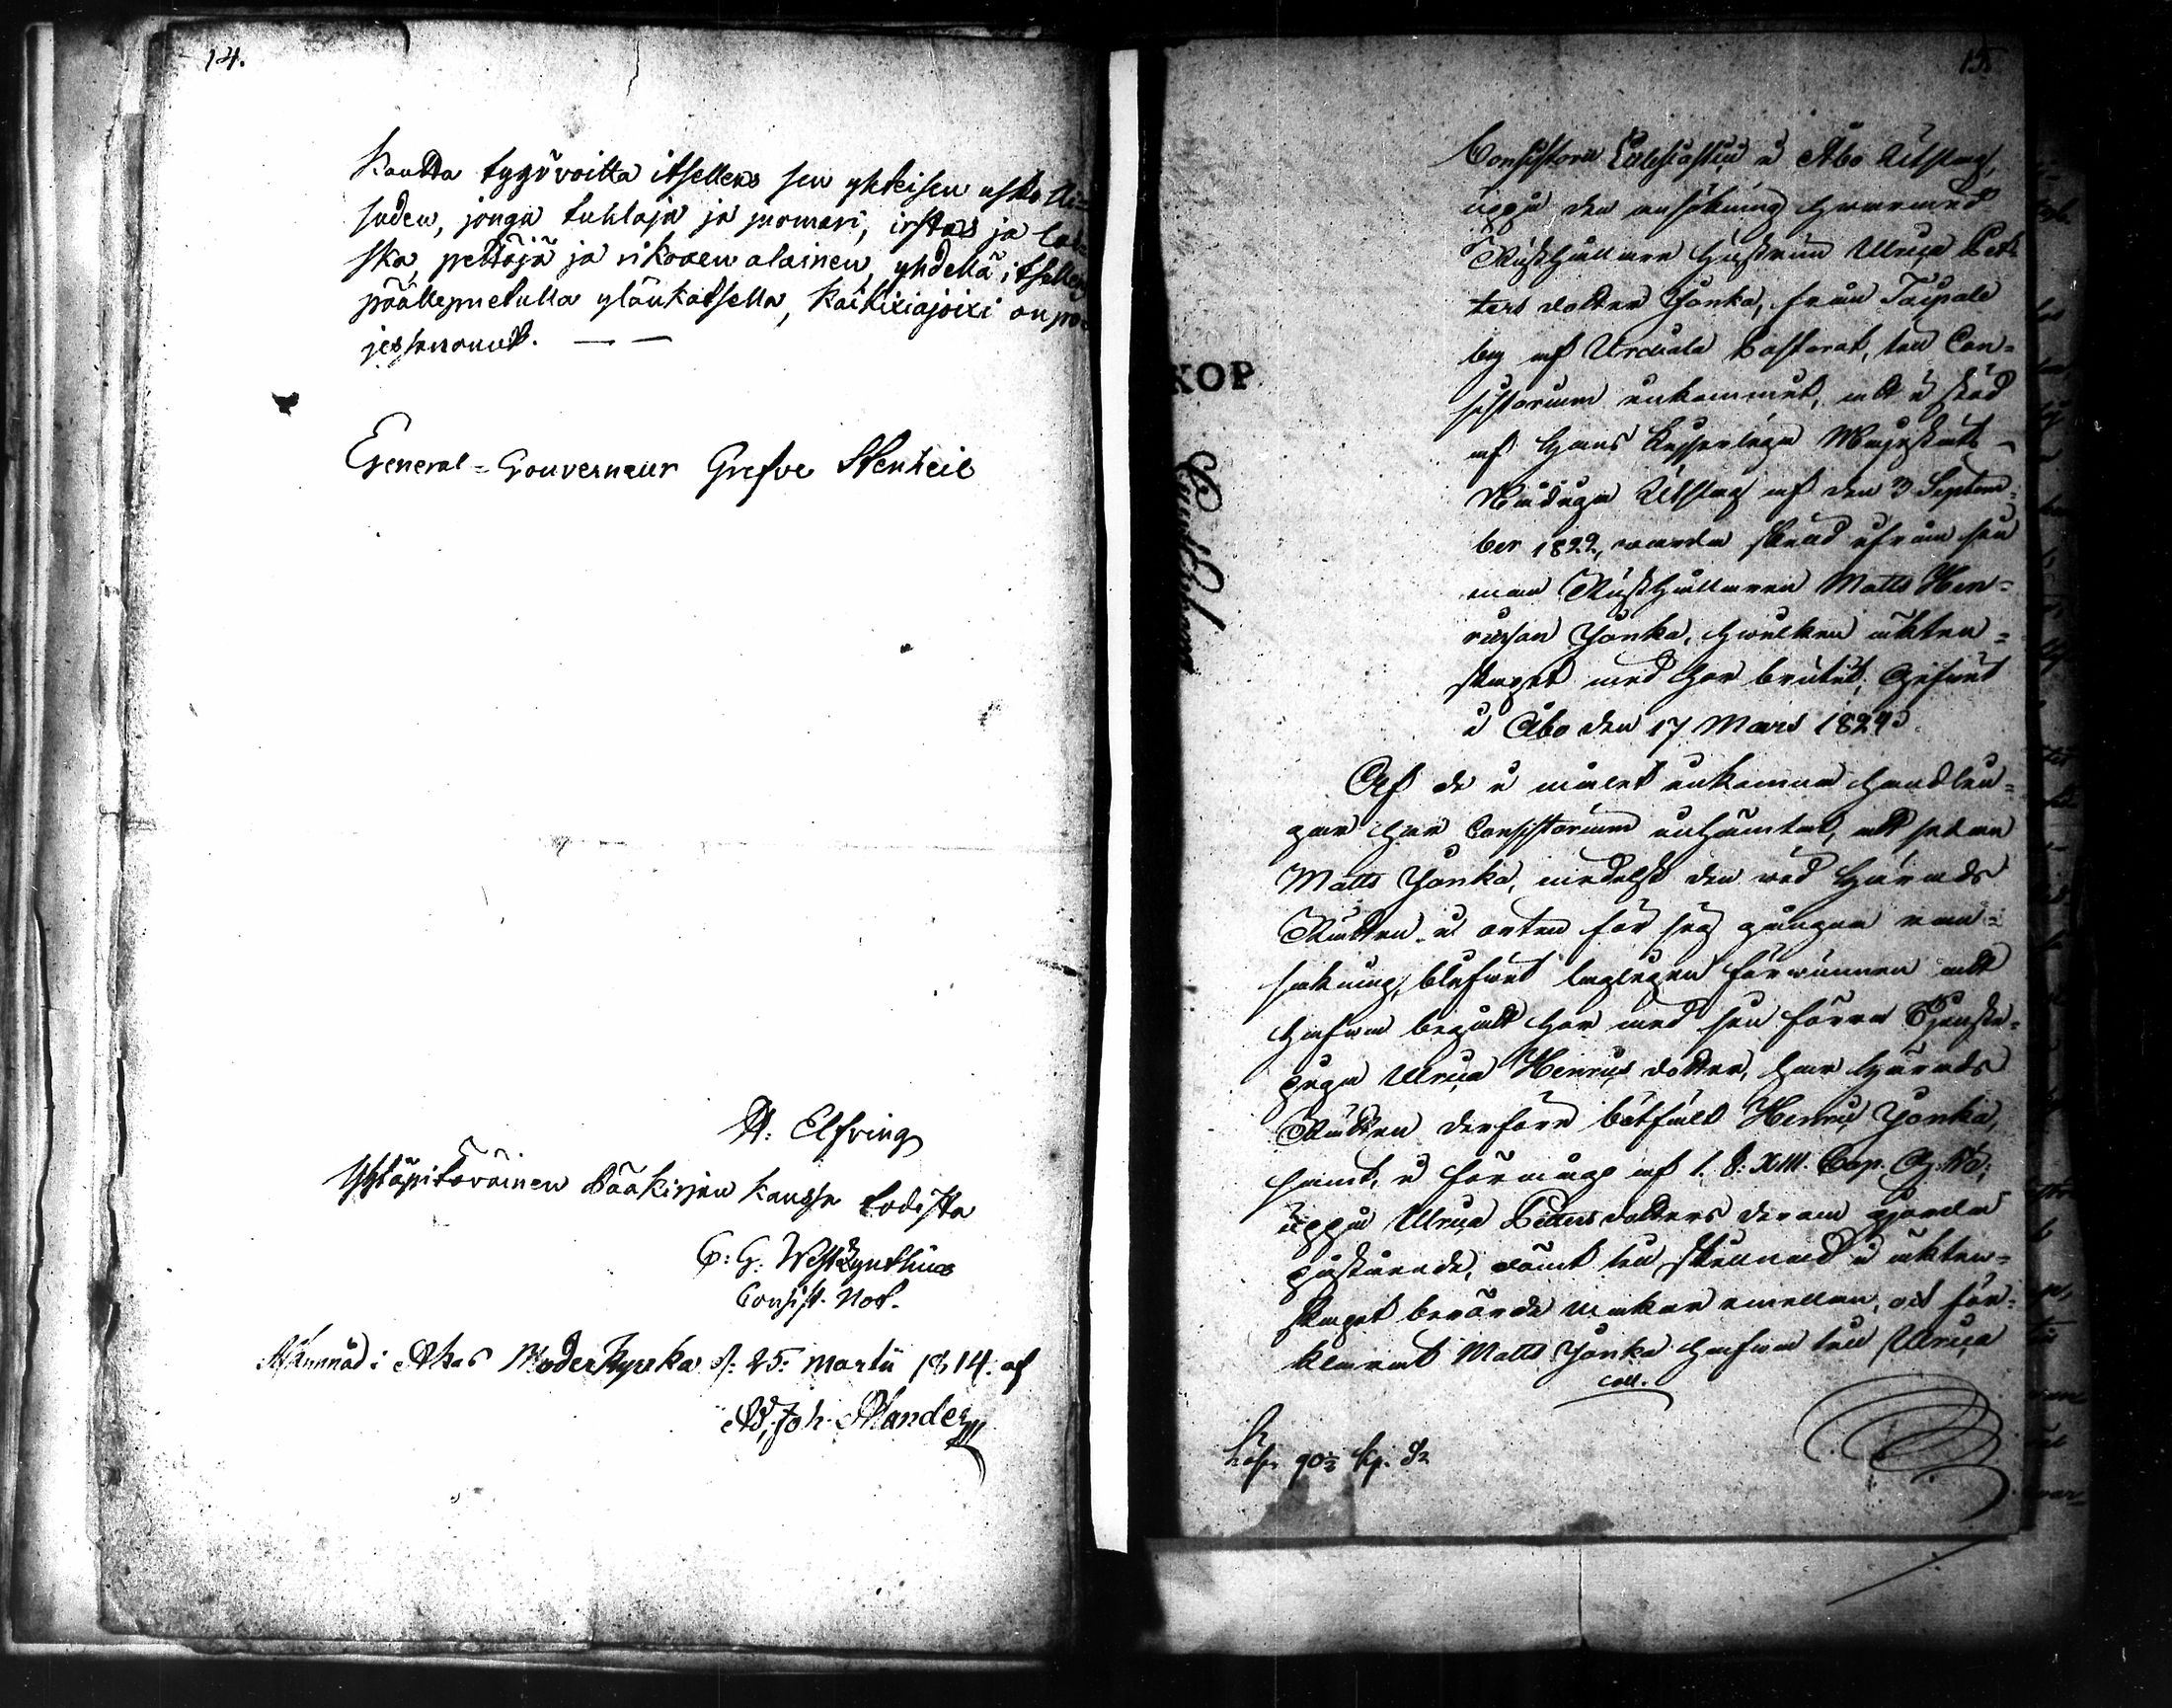 14.
kautta tygövoitta itsellens sen yhteisen uskolli-
suden, jonga tuhlaja ja juomari, irstas ja lai-
ska, pettäjä ja rikoxen alainen, yhdellä itsellens
päällepuetulla ylönkatsella, kaikixiajoixi on po-
jessanonut. — —
General-Gouverneur Grefve Stenheil
A: Elfving
Yhtäpitäväinen Pääkirjan kanssa todista
C: G: Westzynthius
Consist. Not.
Akas Moderkyrka d: 25: Martii 1814. af
Joh.
15
KOP
Consistorii Ecclesiastici i Åbo Utslag,
uppå den ansökning hvarmed
Rusthållare hustrun Ulrica Pet-
ters dotter Yonka, från Taipale
by af Urdiala Pastorat, till Con-
sistorium inkommit, att i stöd
af Hans Kejserliga Majestäts
Nådiga Utslag af den 3 Septem-
ber 1822, varda skild ifrån sin
man Rusthållaren Matts Hen-
ricsson Yonka, hvilken äkten-
skapet med hor brutit; Gifvet
i Åbo den 17 Mars 1824.
Af de i målet inkomna handlin-
gar har Consistorium inhämtat, att sedan
Matts Yonka, medelst den vid Härads
Rätten i orten för sig gångna ran-
sakning, blifvit lagligen förvunnen att
hafva begått hor med sin förra Tjenste-
piga Ulrica Henrics dotter, har Härads
Rätten derföre bötfält Henric Yonka,
samt, i förmåga af 1. §: XIII. Cap. G: B:
uppå Ulrica Petters dotters derom gjorda
påstående, dömt till skillnad i äkten-
skapet berörde makar emellan, och för-
klarat Matts Yonka hafva till Ulrica
coll.
Lösn 90½ kop. Sr